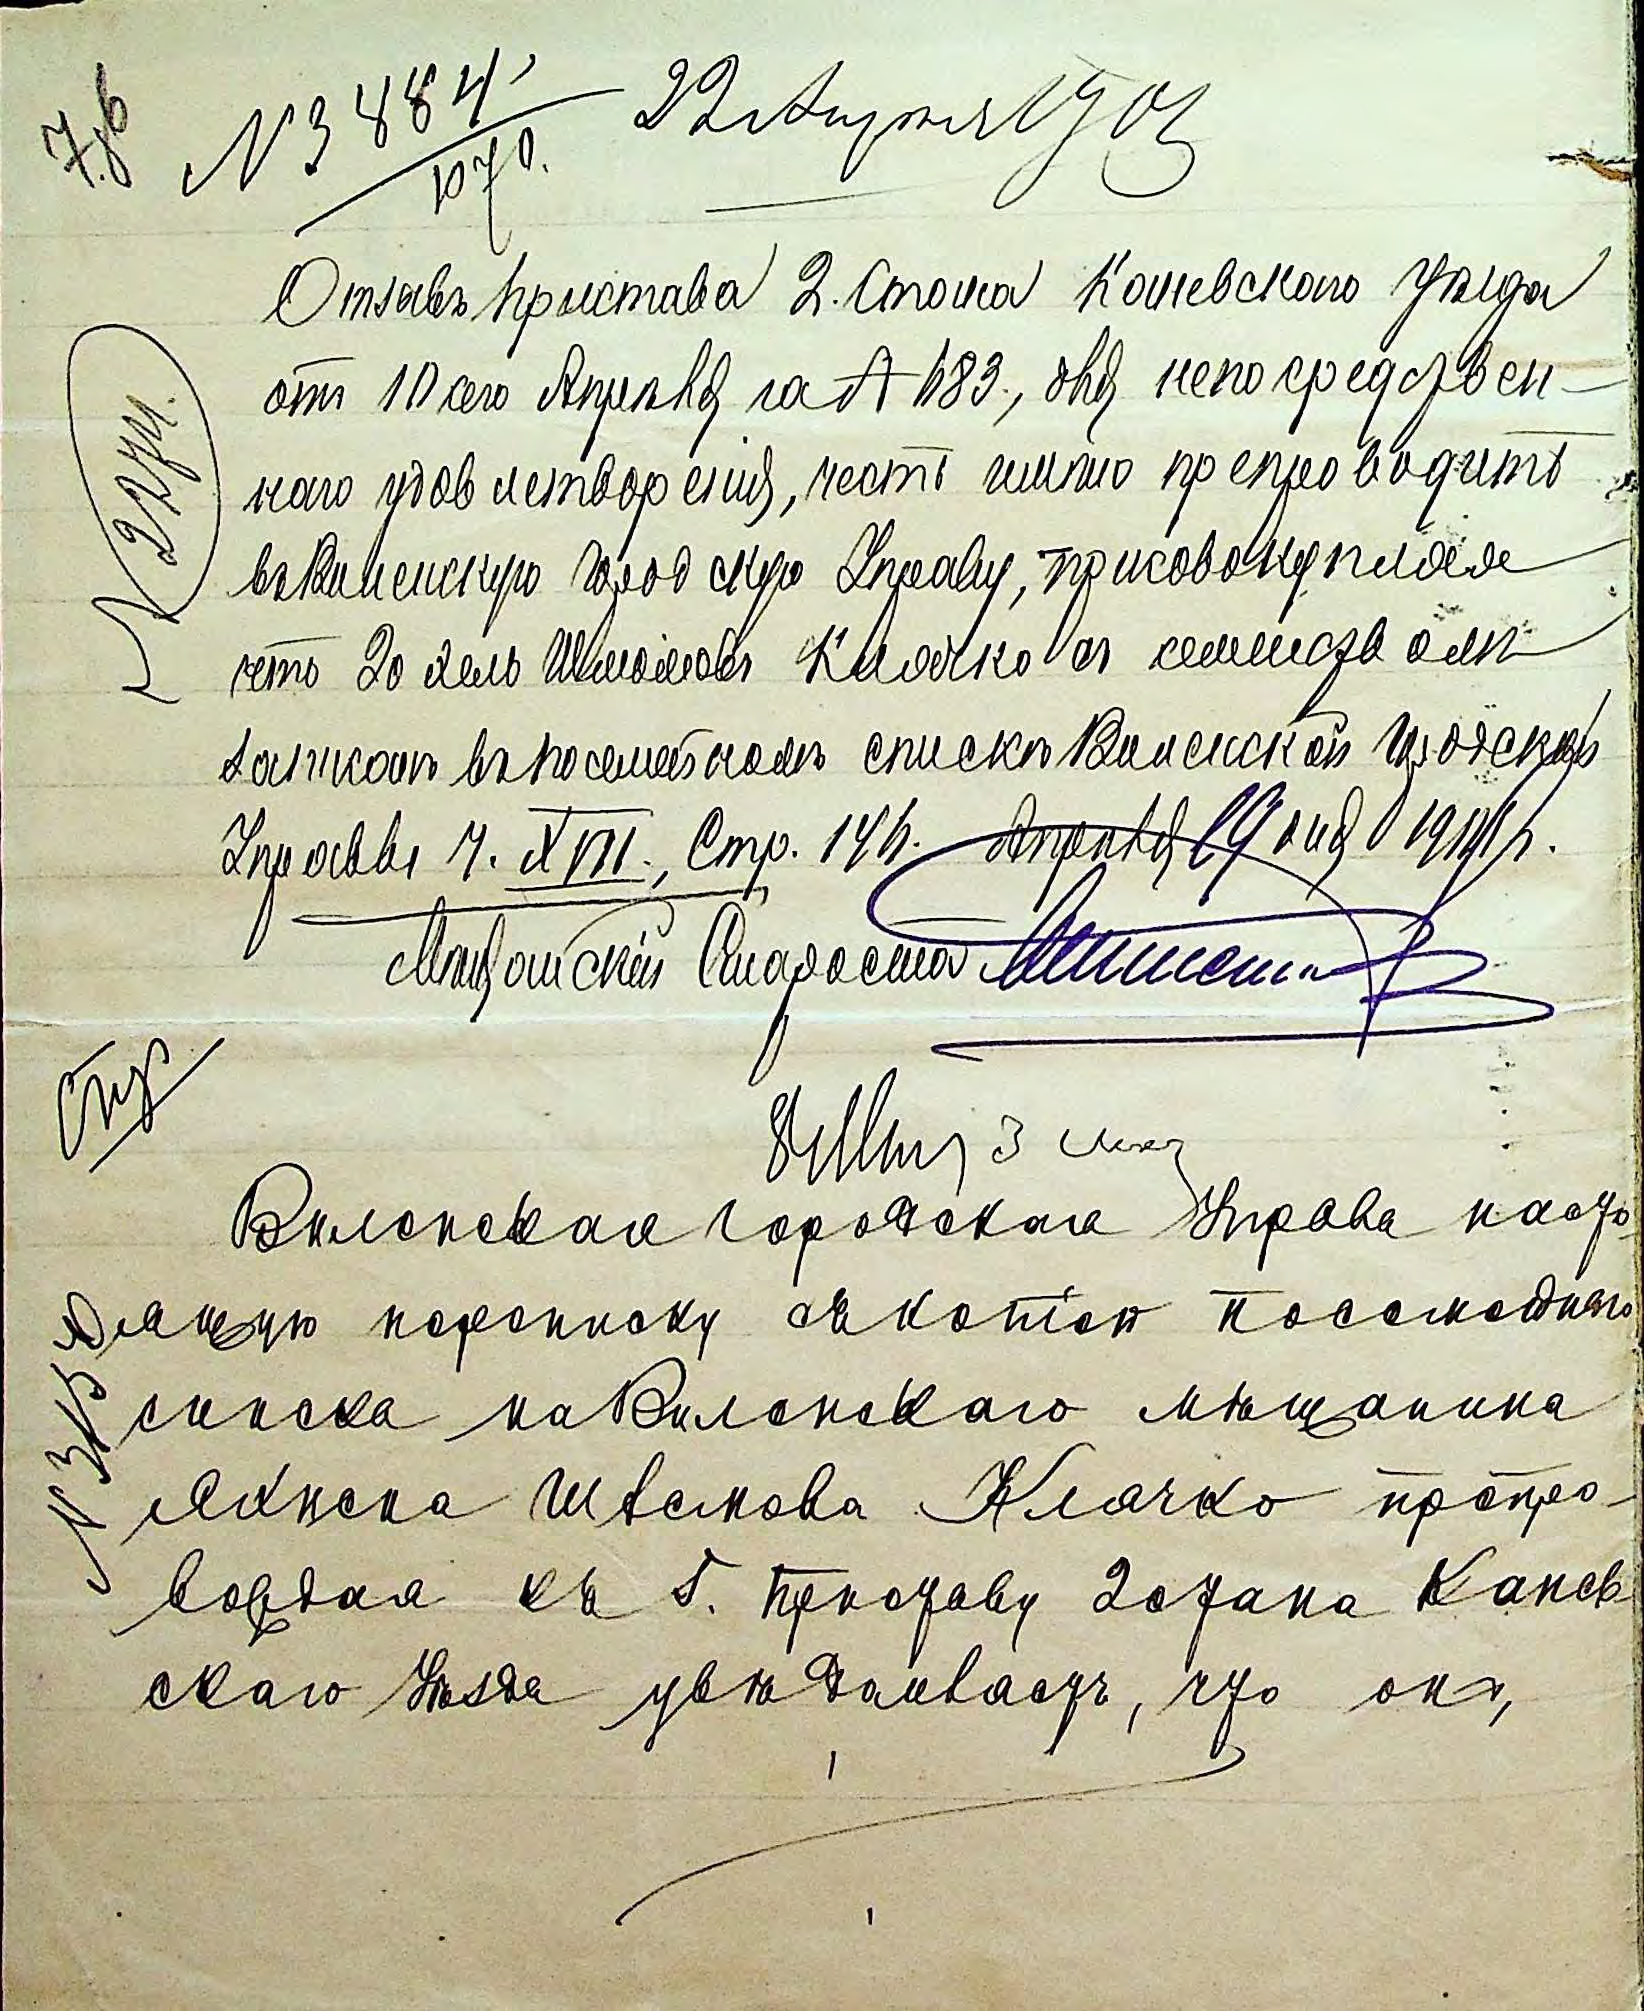 № 3484
1070.
22 Апреля 190
Отзывъ Пристава 2. Стана Каневского Уѣзда
отъ 10 сего Апрѣля за № 683., для непосредствен-
наго удовлетворенія, честь имѣю препроводить
въ Виленскую Городскую Управу, присовокупляя
что Шмаіовъ Клячко съ семействомъ
записанъ въ посемейномъ спискѣ Виленской Городской
Управы Ч. XVIII., Стр. 146. Апрѣля 19 дня
Мѣщанскій Староста
Стр.
3 мая
Виленская Городская Управа насто-
ящую переписку съ копіею посемейнаго
списка на Виленскаго мѣщанина
Клячко препро-
вождая къ Г. Приставу 2 стана Канев-
скаго Уѣзда увѣдомляетъ, что онъ,